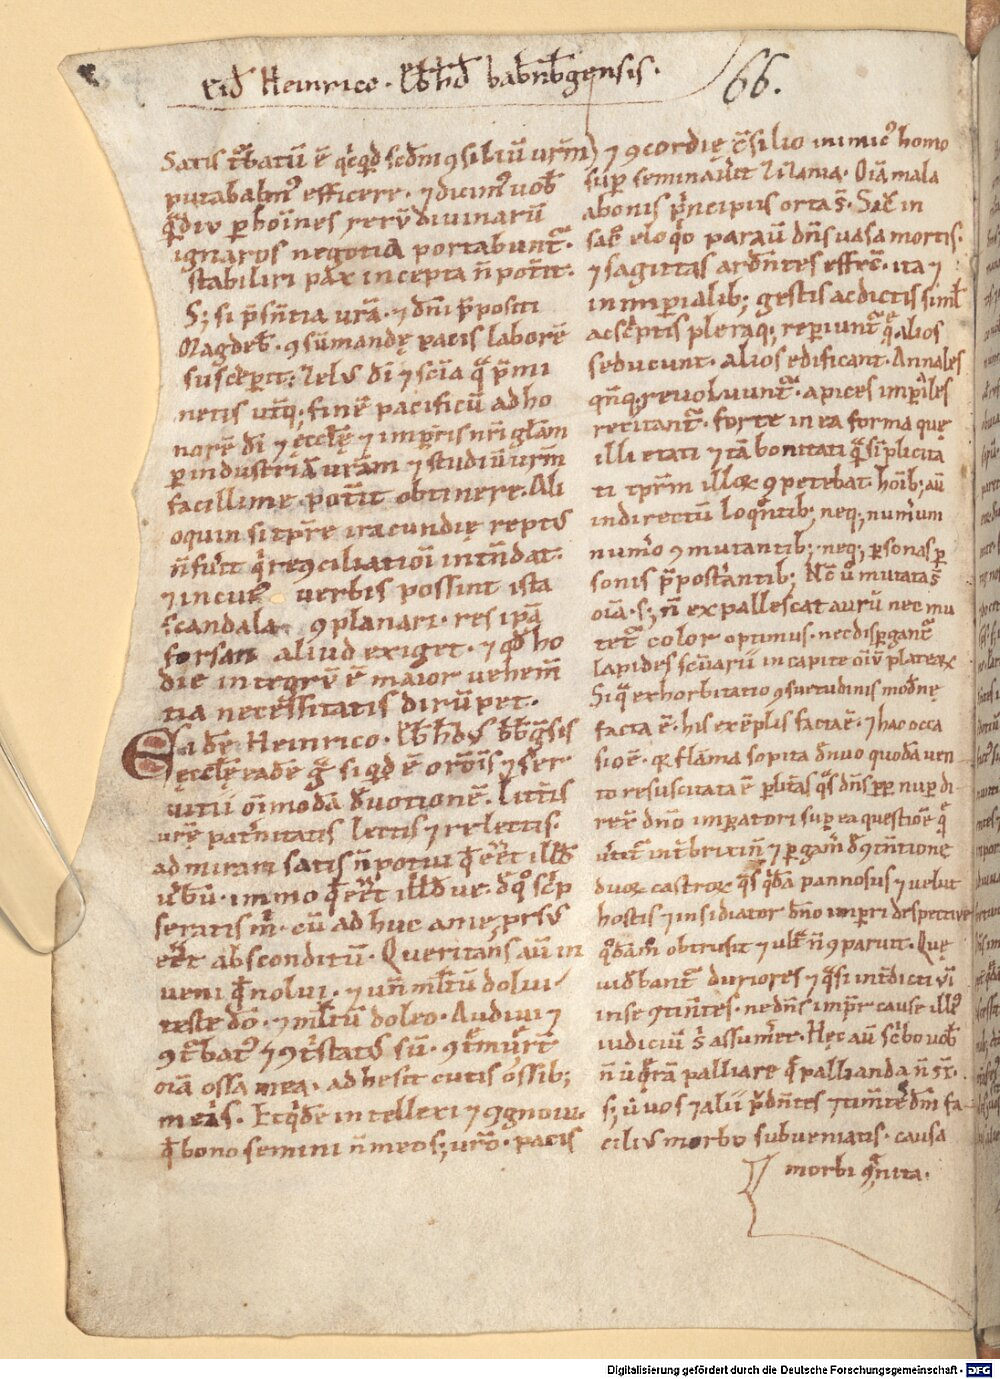 eid̄ Heinrico · eb̄hd̄ babn̄bgensis · 66.
Satis t̄batū ē q̇cqd̄ scd̄m ꝯsiliū ur̄m
putabam᷒ efficere · ⁊ dicim᷒ uob̄
q̄diu ꝑ hōines rerū diuinarū
ignaros negotia portabunt᷑ ·
stabiliri pax incepta n̄ pot̄it ·
S; si p̄sn̄tia ur̄a · ⁊ dn̄i p̄positi
Magdeb̄ · ꝯsūmandę pacis laborē
suscep̄it · zelꝰ dī ⁊ sciā
netis ut̄q; finē pacificū ad ho
norē dī ⁊ ęccl̄ę ⁊ imp̄ris nr̄i gl̄am
ꝑ industriā ur̄am ⁊ studiū ur̄m
facillime pot̄it obtinere. Ali
oquin si tp̄re iracundię
n̄ fu̇it q̇ reꝯciliatiōi int̄ndat ·
⁊ in cuiꝰ uerbis possint ista
scandala ꝯplanari · res ip̄a
forsan aliud exiget · ⁊ qd̄ ho
die integrū ē maior uehem̄
tia necessitatis dirūpet.
Eidē Heinrico · eb̄hdꝰ bb̄gsis
ęccl̄ę radē ḡ siqd̄ ē or̄ōis ⁊ ser
uitii oīmodā d̄uotionē. Litt̄is
ur̄ę pat̄nitatis lectis ⁊ relectis ·
admirari satis n̄ potui q̄ eēt ill̄d
u̇bū · immo q̄ eēt ill̄d ue · sc̄p
seratis m̄ · cū ad huc ante
eēt absconditū · Queritans aū in
ueni q̄ nolui · ⁊ un̄ ml̄tū dolui
teste dō · ⁊ ml̄tū doleo · Audiui ⁊
ꝯt̄batꝰ ⁊ ꝯt̄statꝰ sū · ꝯt̄muer̄t
oīa ossa mea · adhesit cutis ossib;
meis · Et q̇dē intellexi ⁊ ꝯgnoui ·
q̄ bono semini n̄ meo s; ur̄o · pacis
⁊ ꝯcordię ꝯsilio inimicꝰ homo
suꝑ seminau̇it zizania · Oīa mala
a bonis ṗncipiis orta s̄ · Sic̄ in
sac̄ eloq̇o parauit dn̄s uasa mortis ·
⁊ sagittas ard̄ntes effec̄ · ita ⁊
in imꝑialib; gestis ac dictis simił
ac sċptis pleraq; reꝑiunt᷑ q̄ alios
seducunt · alios edificant · Annales
qn̄q; reuoluunt᷑ · apices imꝑiles
recitant᷑ · forte in ea forma quę
illi etati ⁊ tā bonitati q̄si plicita
ti tp̄rm illoꝝ ꝯpetebat · hōib; aū
in directū loqn̄tib; neq; num̄um
num̄o ꝯmutantib; · neq; ꝑsonas ꝑ
sonis p̄post̄antib; Nc̄ u̇ mutata s̄
oīa · s; n̄ expallescat aurū nec mu
tet᷑ color optimus · nec disꝑgant᷑
lapides sc̄uarii in capite oīū plateaꝝ
Siq̄ exhorbitatio ꝯsuetudinis mod̄nę
facta ē · his exēplis facta ē · ⁊ hac occa
sioē · q̄ flāma sopita d̄nuo quodā uen
to resuscitata ē
rexē dn̄o imꝑatori suꝑ ea questiōe q̄
⁊ ꝑgam̄ d̄ ꝯt̄ntione
duoꝝ castroꝝ q̄s q̇dā pannosus ⁊ uelut
hostis ⁊ insidiator dn̄o imꝑri despectiue
q̇dāmō obtrusit ⁊ n̄ ꝯparuit. Quę
uid̄bant᷑ duriores ⁊ q̄si int̄dicti uī
in se ꝯtin̄tes · ne dn̄s imꝑr cause illiꝰ
iudiciū s̄ assum̄et · Hęc aū sċbo uob̄
n̄ palliare q̄ pallianda n̄ st̄ ·
s; ut uos ⁊ alii p̄d̄ntes ⁊ tim̄tes dm̄ fa
ciliꝰ morbo subueniatis · causa
morbi ꝯgnita ·
Digitalisierung gefördert durch die Deutsche Forschungsgemeinschaft - DFG